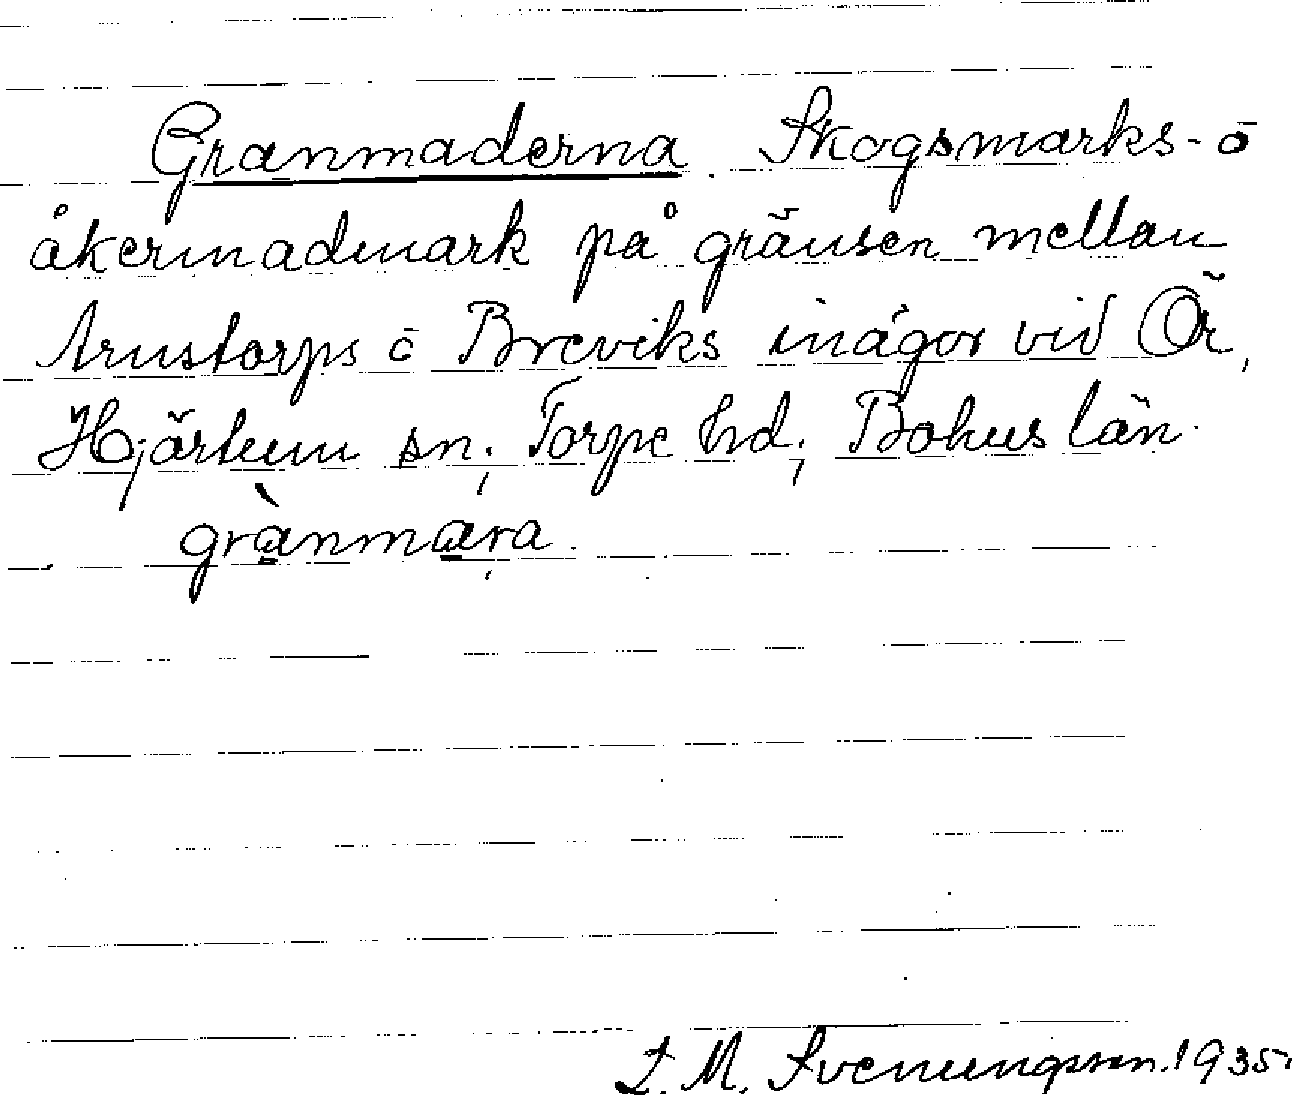 Granmaderna. Skogsmarks- o
åkermadmark på gränsen mellan
Arnstorps o Breviks inägor vid Ör,
Hjärtum sn; Torpe hd; Bohus län.
grànmara.
L. M. Svenungsson. 1935.